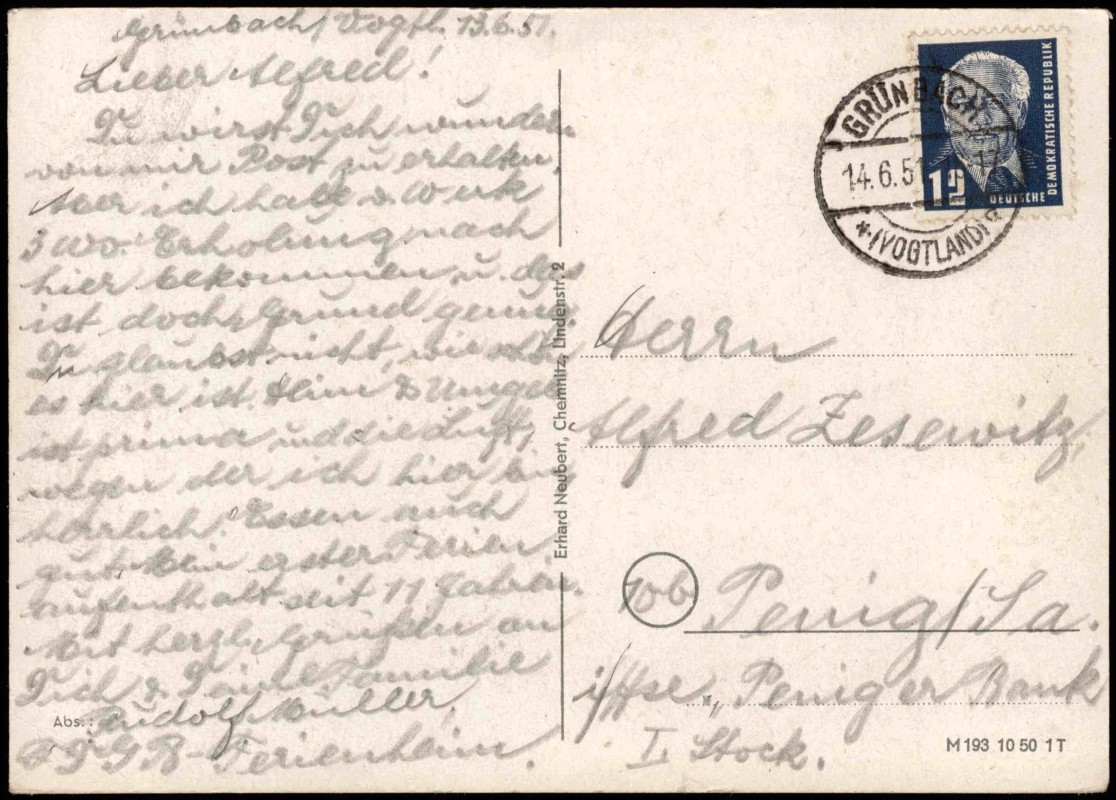 Grünbach/Vogtl. 13.6.51.
Lieber Alfred!
Du wirst Dich wundern
von mir Post zu erhalten.
Aber ich habe v. Werk
3 Wo. Erholung nach
hier bekommen, u. das
ist doch Grund genug.
Du glaubst nicht, wie
es hier ist. Heim & Umgeb.
ist prima und die Luft,
wegen der ich hier bin
herrlich. Essen auch
gut. Mein erster Ferien
aufenthalt seit 11 Jahren.
Mit herzl. Grüßen an
Dich & Deine Familie
Abs.: Rudolf Müller,
FDGB-Ferienheim
Erhard Neubert, Chemnitz, Lindenstr. 2
GRÜNBACH
14.6.51
(VOGTLAND)
12
DEUTSCHE
DEMOKRATISCHE REPUBLIK
Herrn
Alfred Zesewitz
10b Penig/Sa.
i/Hse „Peniger Bank
I. Stock.
M 193 10 50 1 T